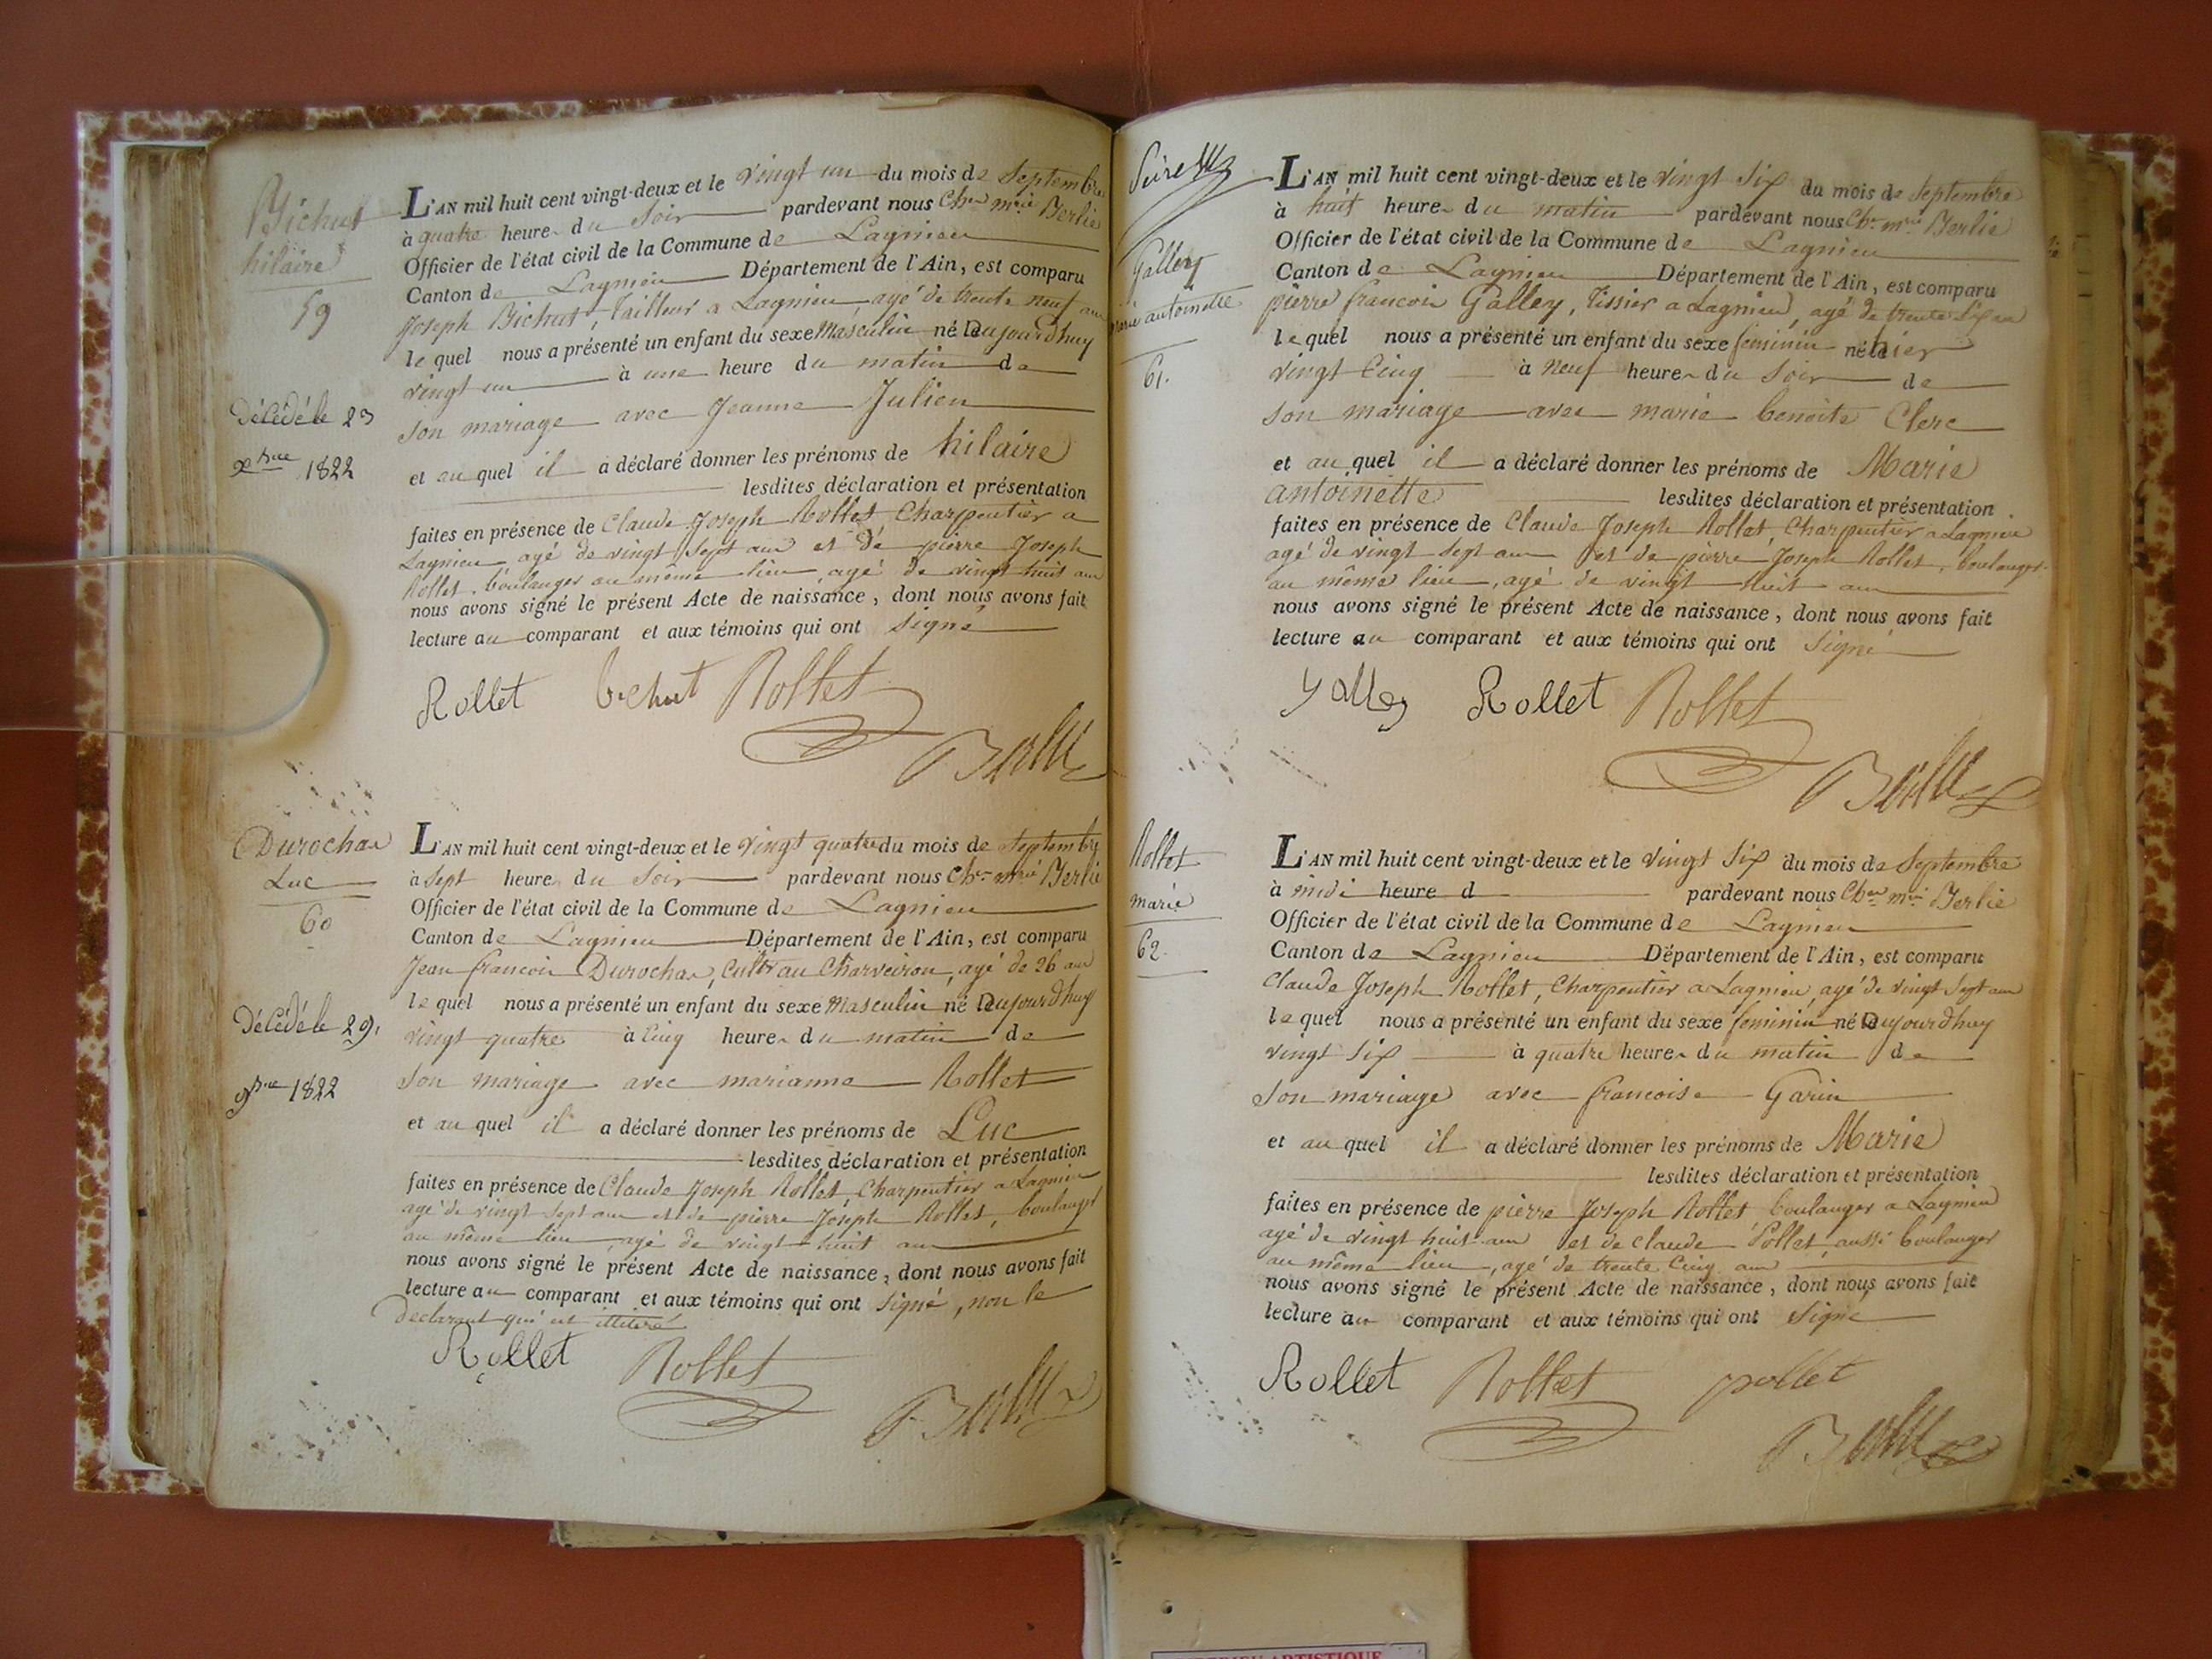 Bichat
hilaire
59
Décédé le 23
xbre 1822
L'AN mil huit cent vingt-deux et le vingt un du mois de Septembre
à quatre heure du Soir pardevant nous Cher mrie Berlie
Officier de l'état civil de la Commune de Lagnieu
Canton de Lagnieu Département de l'Ain, est comparu
Joseph Bichat, Tailleur a Lagnieu, agé de trente neuf ans
lequel nous a présenté un enfant du sexe Masculin né le aujourdhuy
vingt un à une heure du matin de
son mariage avec Jeanne Julien
et au quel il a déclaré donner les prénoms de hilaire
lesdites déclaration et présentation
faites en présence de Claude Joseph Rollet, Charpentier a
Lagnieu agé de vingt Sept ans et de pierre Joseph
Rollet, boulanger au même lieu, agé de vingt huit ans
nous avons signé le présent Acte de naissance, dont nous avons fait
lecture au comparant et aux témoins qui ont Signé
Rollet bichat Rollet
Berlie
Durochat
Luc
60
Décédé le 29
9bre 1822
L'AN mil huit cent vingt-deux et le vingt quatre du mois de Septembre
à Sept heure du Soir pardevant nous Cher mrie Berlie
Officier de l'état civil de la Commune de Lagnieu
Canton de Lagnieu Département de l'Ain, est comparu
Jean francois Durochat, Cultr au Charveiron, agé de 26 ans
lequel nous a présenté un enfant du sexe Masculin né le aujourdhuy
vingt quatre à Cinq heure du matin de
son mariage avec marianne Rollet
et au quel il a déclaré donner les prénoms de Luc
lesdites déclaration et présentation
faites en présence de Claude Joseph Rollet, Charpentier a Lagnieu
agé de vingt sept ans et de pierre Joseph Rollet, boulanger
au même lieu, agé de vingt huit ans
nous avons signé le présent Acte de naissance, dont nous avons fait
lecture au comparant et aux témoins qui ont Signé, non le
declarant qui est illitéré
Rollet Rollet
Berlie
Galley
marie antoinette
61.
L'AN mil huit cent vingt-deux et le vingt Six du mois de Septembre
à huit heure du matin pardevant nous Cher mrie Berlie
Officier de l'état civil de la Commune de Lagnieu
Canton de Lagnieu Département de l'Ain, est comparu
pierre francois Galley, Tissier a Lagnieu, agé de trente Six ans
lequel nous a présenté un enfant du sexe feminin né le hier
vingt Cinq à Neuf heure du Soir de
son mariage avec marie benoite Clerc
et au quel il a déclaré donner les prénoms de Marie
antoinette lesdites déclaration et présentation
faites en présence de Claude Joseph Rollet, Charpentier a Lagnieu
agé de vingt sept ans et de pierre Joseph Rollet, boulanger
au même lieu, agé de vingt huit ans
nous avons signé le présent Acte de naissance, dont nous avons fait
lecture au comparant et aux témoins qui ont Signé
galley Rollet Rollet
Berlie
Rollet
marie
62.
L'AN mil huit cent vingt-deux et le vingt Six du mois de Septembre
à midi heure d pardevant nous Cher mrie Berlie
Officier de l'état civil de la Commune de Lagnieu
Canton de Lagnieu Département de l'Ain, est comparu
Claude Joseph Rollet, Charpentier a Lagnieu, agé de vingt Sept ans
lequel nous a présenté un enfant du sexe feminin né le aujourdhuy
vingt Six à quatre heure du matin de
son mariage avec francoise Garin
et au quel il a déclaré donner les prénoms de Marie
lesdites déclaration et présentation
faites en présence de pierre Joseph Rollet boulanger a Lagnieu
agé de vingt huit ans et de Claude Pollet, aussi boulanger
au même lieu, agé de trente Cinq ans
nous avons signé le présent Acte de naissance, dont nous avons fait
lecture au comparant et aux témoins qui ont Signé
Rollet Rollet pollet
Berlie
ARTISTIQUE